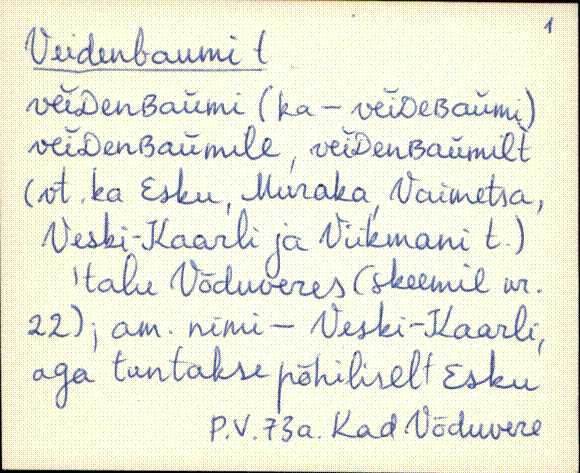 1
Veidenbaumi t
vĕĭDenʙaŭmi (ka – vĕĭDeʙaŭmi)
vĕĭDenʙaŭmile, vĕĭDenʙaŭmilt
(vt. ka Esku, Muraka, Vaimetsa,
Veski-Kaarli ja Viikmani t.)
'talu Võduveres (skeemil nr.
22); am. nimi – Veski-Kaarli,
aga tuntakse põhiliselt Esku
P.V. 73a. Kad Võduvere